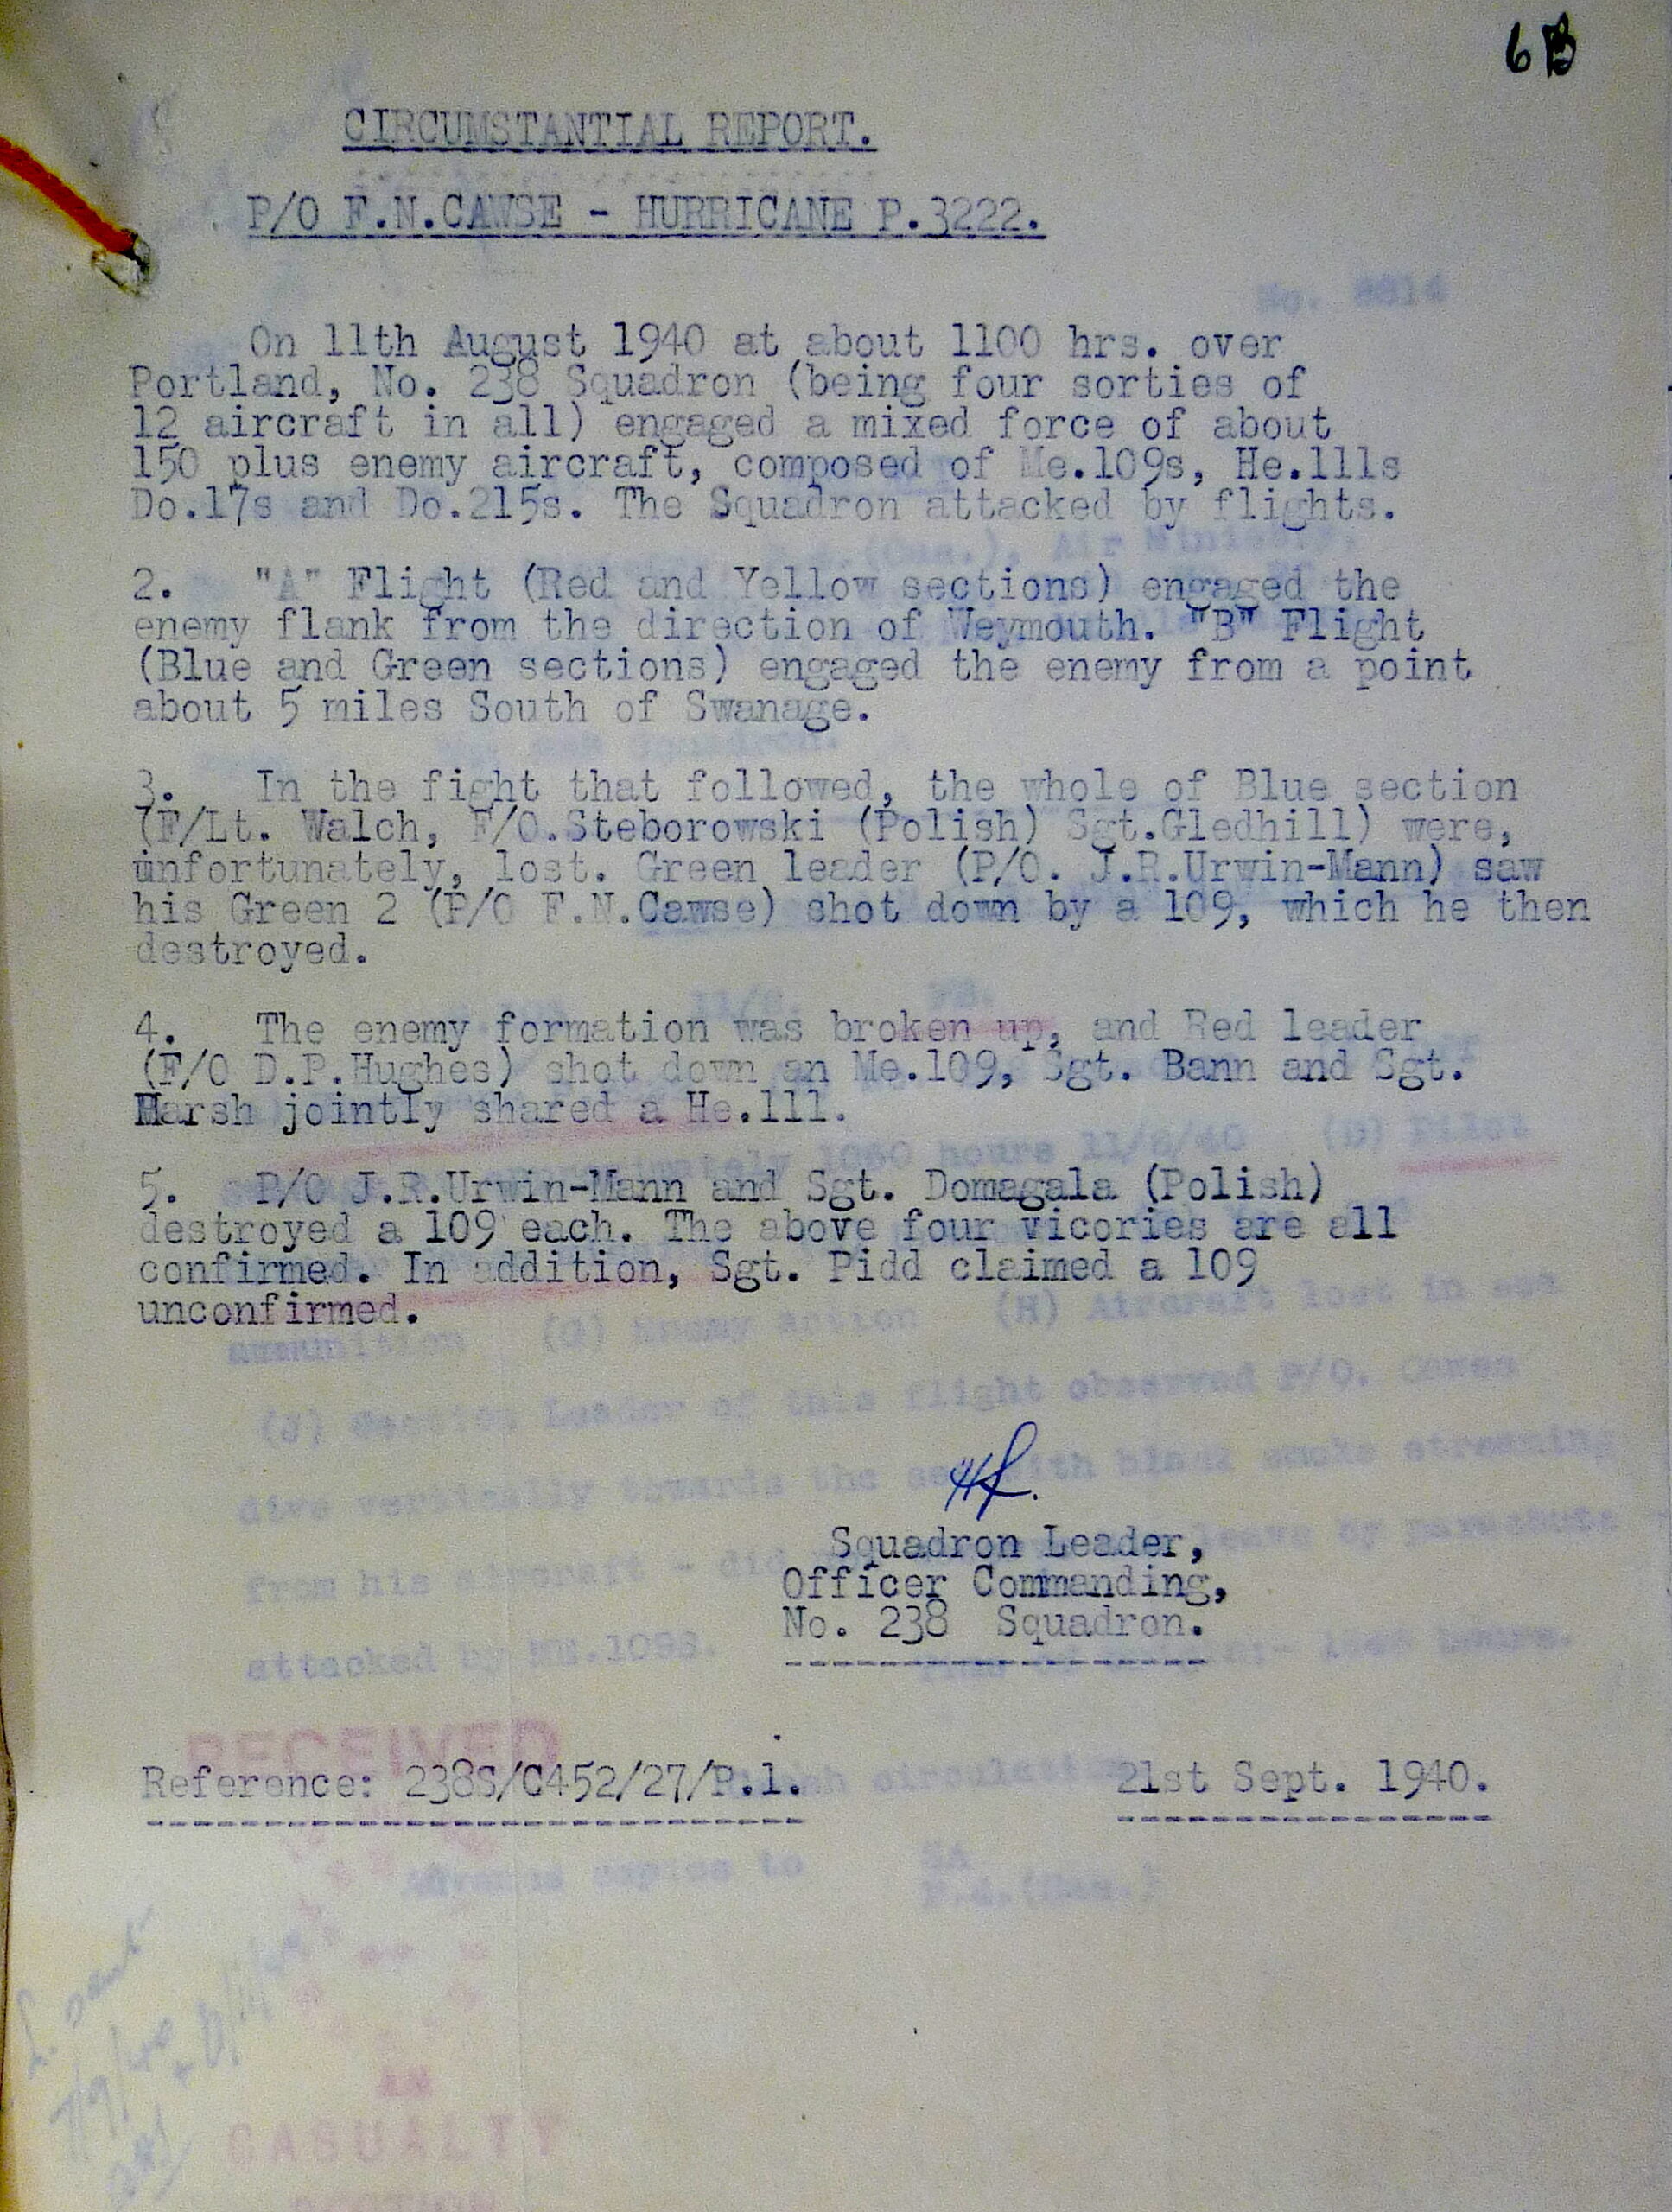 6B
CIRCUMSTANTIAL REPORT.
P/O F.N.CAWSE - HURRICANE P.3222.
No. 8814
On 11th August 1940 at about 1100 hrs. over
Portland, No. 238 Squadron (being four sorties of
12 aircraft in all) engaged a mixed force of about
150 plus enemy aircraft, composed of Me.109s, He.111s
Do.17s and Do.215s. The Squadron attacked by flights.
2. "A" Flight (Red and Yellow sections) engaged the
enemy flank from the direction of Weymouth. "B" Flight
(Blue and Green sections) engaged the enemy from a point
about 5 miles South of Swanage.
3. In the fight that followed, the whole of Blue section
(F/Lt. Walch, F/O.Steborowski (Polish) Sgt.Gledhill) were,
unfortunately, lost. Green leader (P/O. J.R.Urwin-Mann) saw
his Green 2 (P/O F.N.Cawse) shot down by a 109, which he then
destroyed.
4. The enemy formation was broken up, and Red leader
(F/O D.P.Hughes) shot down an Me.109, Sgt. Bann and Sgt.
Marsh jointly shared a He.111.
5. P/O J.R.Urwin-Mann and Sgt. Domagala (Polish)
destroyed a 109 each. The above four vicories are all
confirmed. In addition, Sgt. Pidd claimed a 109
unconfirmed.
Squadron Leader,
Officer Commanding,
No. 238 Squadron.
RECEIVED
Reference: 238S/C452/27/P.1. 21st Sept. 1940.
CASUALTY